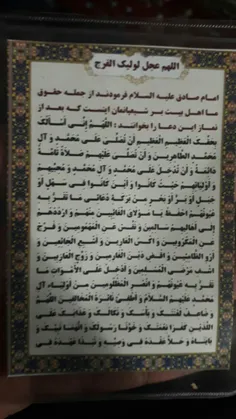 اللهم عجل لولیک الفرج
امام صادق علیه السلام فرمودند از جمله حقوق
ما اهل بیت بر شیعیانمان اینست که بعد از
نماز این دعا را بخوانند: اَللّهُمَّ إِنّی أَسأَلُکَ
بِحَقِّکَ العَظیمِ العَظیمِ أَن تُصَلِّیَ عَلی مُحَمَّدٍ وَ آلِ
مُحَمَّدٍ الطّاهِرینَ وَ أَن تُصَلِّیَ عَلَیهِم صَلاةً تامَّةً
دائِمَةً وَ أَن تُدخِلَ عَلی مُحَمَّدٍ وَ آلِ مُحَمَّدٍ وَ مُحِبّیهِم
وَ أَولِیائِهِم حَیثُ کانُوا وَ أَینَ کانُوا فی سَهلٍ أَو
جَبَلٍ أَو بَرٍّ أَو بَحرٍ مِن بَرَکَةِ دُعائی ما تَقَرُّ بِهِ
عُیُونُهُم اِحفَظ یا مَولایَ الغائِبینَ مِنهُم وَ اردُدهُم
إِلی أَهالیهِم سالِمینَ وَ نَفِّس عَنِ المَهمُومینَ وَ فَرِّج
عَنِ المَکرُوبینَ وَ اکسُ العارینَ وَ أَشبِعِ الجائِعینَ وَ
أَروِ الظّامِئینَ وَ اقضِ دَینَ الغارِمینَ وَ زَوِّجِ العازِبینَ وَ
اشفِ مَرضَی المُسلِمینَ وَ أَدخِل عَلَی الأَمواتِ ما
تَقَرُّ بِهِ عُیُونُهُم وَ انصُرِ المَظلُومینَ مِن أَولِیاءِ آلِ
مُحَمَّدٍ عَلَیهِمُ السَّلامُ وَ أَطفِئ نائِرَةَ المُخالِفینَ اَللّهُمَّ
وَ ضاعِف لَعنَتَکَ وَ بَأسَکَ وَ نَکالَکَ وَ عَذابَکَ عَلَی
اللَّذَینِ کَفَرا نِعمَتَکَ وَ خَوَّنا رَسُولَکَ وَ اتَّهَما نَبِیَّکَ وَ
بایَناهُ وَ حَلّا عَقدَهُ فی وَصِیِّهِ وَ نَبَذا عَهدَهُ فی